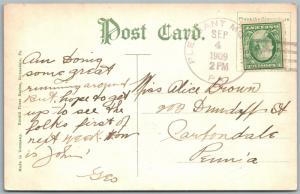 Post Card.
PLEASANT M
SEP
4
1909
2 PM
PA
Am Doing
some great
running around
But hope to get
up to see the
folks first of
next week. How
is John?
Geo
Miss Alice Brown
Dundaff St
Carbondale
Penn'a
Made in Germany.